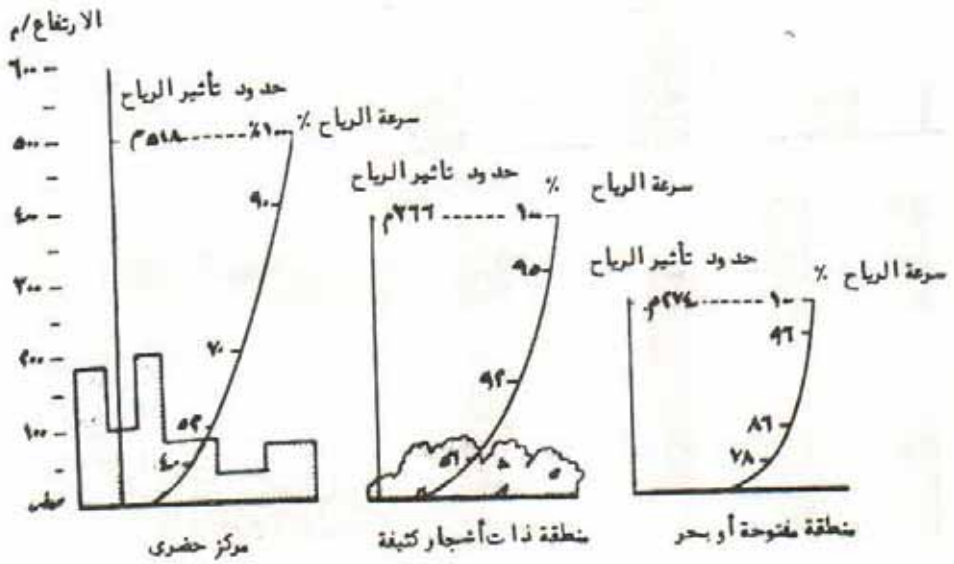 الارتفاع/م
٦٠٠
٥٠٠
٤٠٠
٣٠٠
٢٠٠
١٠٠
صفر
حدود تأثير الرياح
سرعة الرياح %
٥١٨م
%١٠٠
٩٠
٧٠
٥٣
٤٠
مركز حضرى
حدود تاثير الرياح
سرعة الرياح %
٣٦٦م
١٠٠
٩٥
٩٣
٥٦
منطقة ذات أشجار كثيفة
حدود تأثير الرياح
سرعة الرياح %
٢٧٤م
١٠٠
٩٦
٨٦
٧٨
منطقة مفتوحة أو بحر